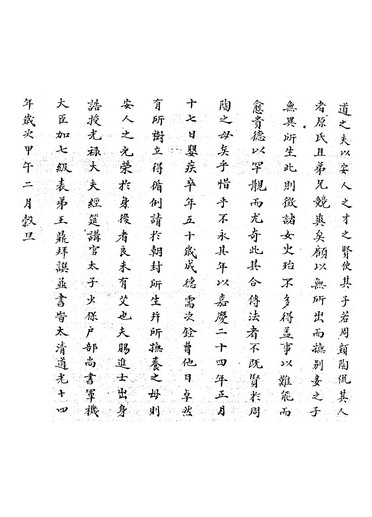 道之夫以安人之才之賢使其子若周顗陶侃其人
者原氏丑弟兄競爽矣顧以無所出而撫別妾之子
無異所生此則徵諸女史殆不多得蓋事以難能而
愈貴德以罕覯而尤奇此其合得法者不既賢於周
陶之母矣乎惜乎不永其年以嘉慶二十四年正月
十七日嬰疾卒年五十歲成德需次銓曹他日卓然
有所樹立得循例請於朝封所生并所撫養之母則
安人之光榮於身後者良未有艾也夫賜進士出身
誥授光祿大夫經筵講官太子少保戶部尚書軍機
大臣加七級表弟王鼎拜譔並書皆太清道光十四
年歲次甲午二月穀旦